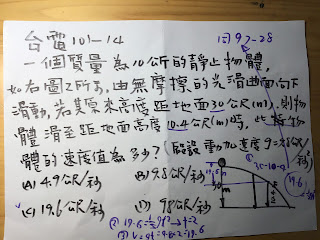 台電101-14
(5) 97-28
一個質量為10公斤的靜止物體,
如右圖2所示,由無摩擦的光滑曲面向下
滑動,若其原來高度距地面30公尺(m),則物
體滑至距地面高度10.4公尺(m)時,此時物
體的速度值為多少?(假設重力加速度g=9.8公尺/秒²)
(A) 4.9公尺/秒
(B) 9.8公尺/秒
(C) 19.6公尺/秒
(D) 98公尺/秒
19.6
30
m
19.6
② 19.6=½gt² → t=2
③ v=gt=9.8×2=19.6